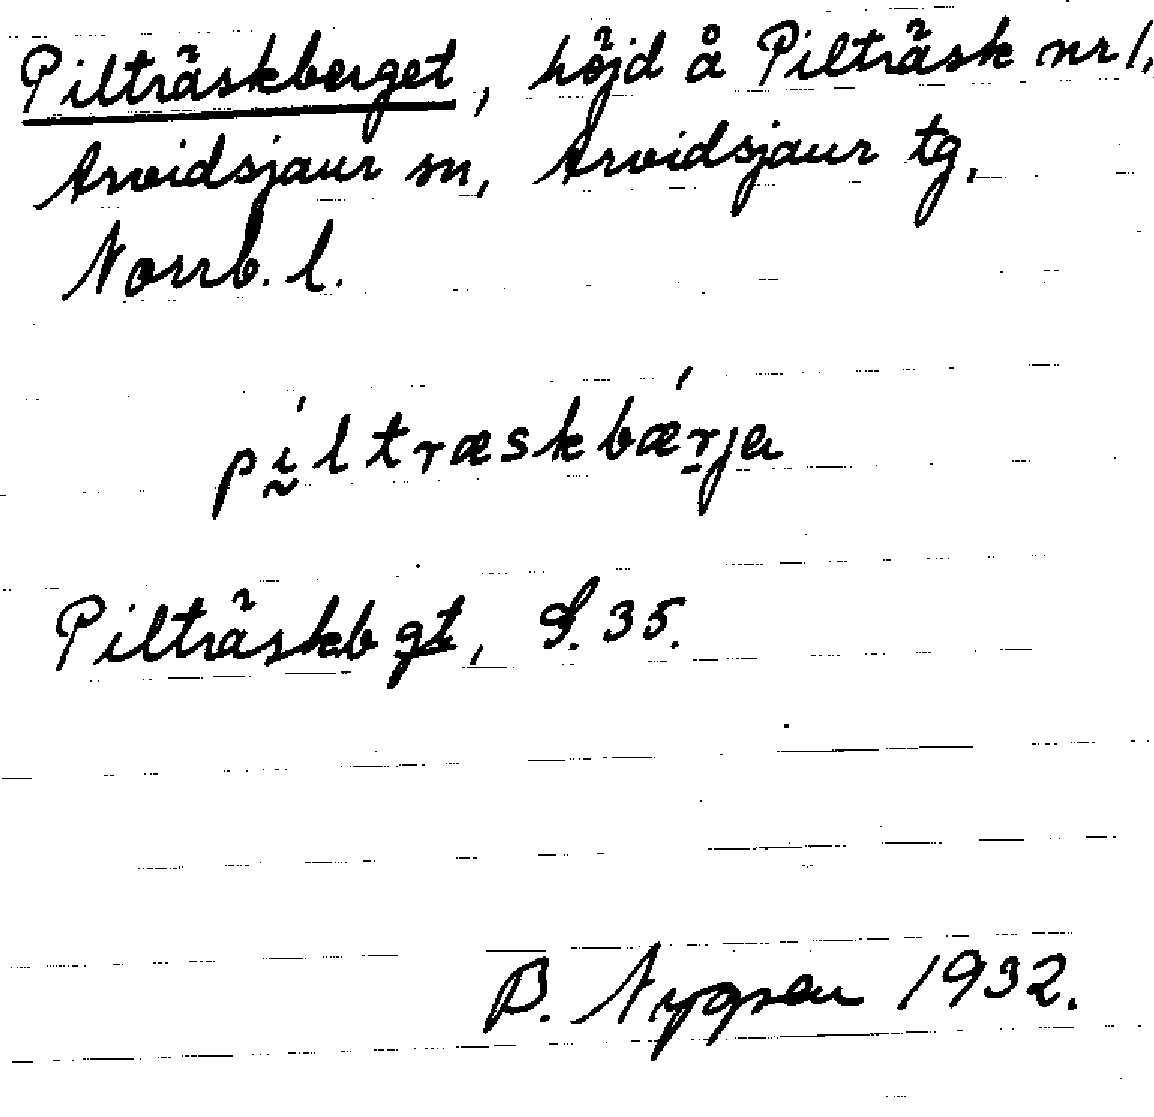 Pilträskberget, höjd å Pilträsk nr 1,
Arvidsjaur sn, Arvidsjaur tg,
Norrb. l.
pḭ́ltræskbǽr̠ja
Pilträskbgt, S. 35.
B. 1932.